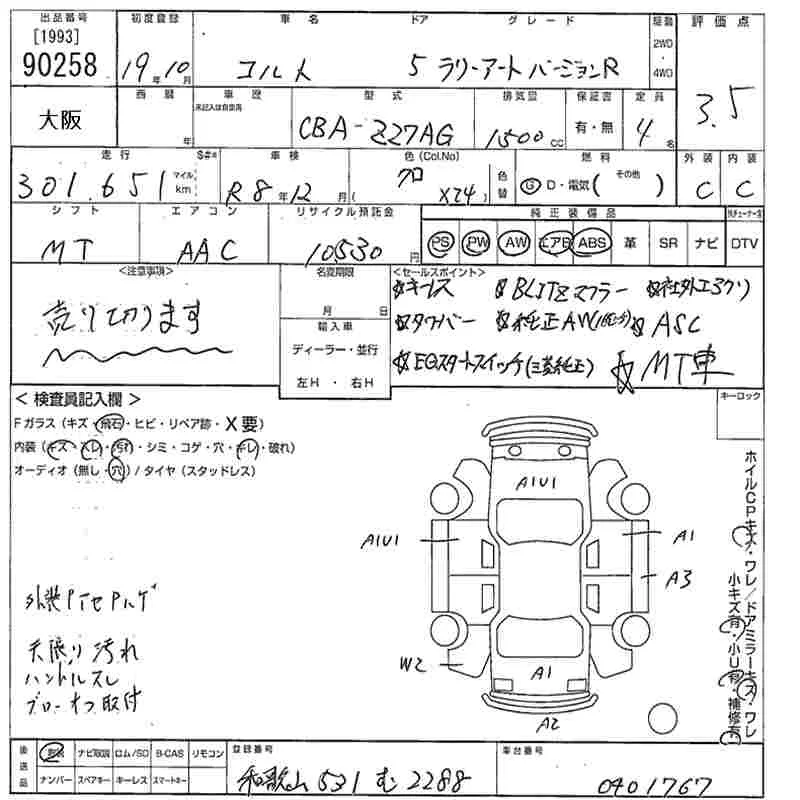 出品番号 初度登録 車名 ドア グレード 駆動 評価点
[1993]
90258 19年10月 コルト 5 ラリーアート バージョンR 2WD・4WD 3.5
西暦 車歴 型式 排気量 保証書 定員
大阪 年 未記入は自家用 CBA-Z27AG 1500cc 有・無 4名
走行 S#* 車検 色(Col.No) 燃料 外装 内装
301.651 マイル km R8年12月 ( クロ X24 ) 色替 G D・電気( その他 ) C C
シフト エアコン リサイクル預託金 純正装備品
MT AAC 10530円 PS PW AW エアB ABS 革 SR ナビ DTV
<注意事項> 名変期限 <セールスポイント>
売り切ります 月 日 ☆キーレス ☆BLITZマフラー ☆社外エアクリ
輸入車 ☆タワーバー ☆純正AW ☆ASC
ディーラー・並行 ☆EGスタートスイッチ(三菱純正) ☆MT車
左H・右H
<検査員記入欄> キーロック
Fガラス (キズ・飛石・ヒビ・リペア跡・X要)
内装 (キズ・スレ・汚れ・シミ・コゲ・穴・キレ・破れ)
オーディオ (無し・穴) / タイヤ (スタッドレス)
A1U1
A1U1 A1
A3
W2 A1
A2
天張り汚れ
ハンドルスレ
ブローオフ取付
ホイルCPキズ・ワレ/ドアミラーキズ・ワレ
小キズ有・小U有・補修有
後送品 ナビ取説 ロム/SD B-CAS リモコン 登録番号 車台番号
ナンバー スペアキー キーレス スマートキー 和歌山 531 む 2288 0401767